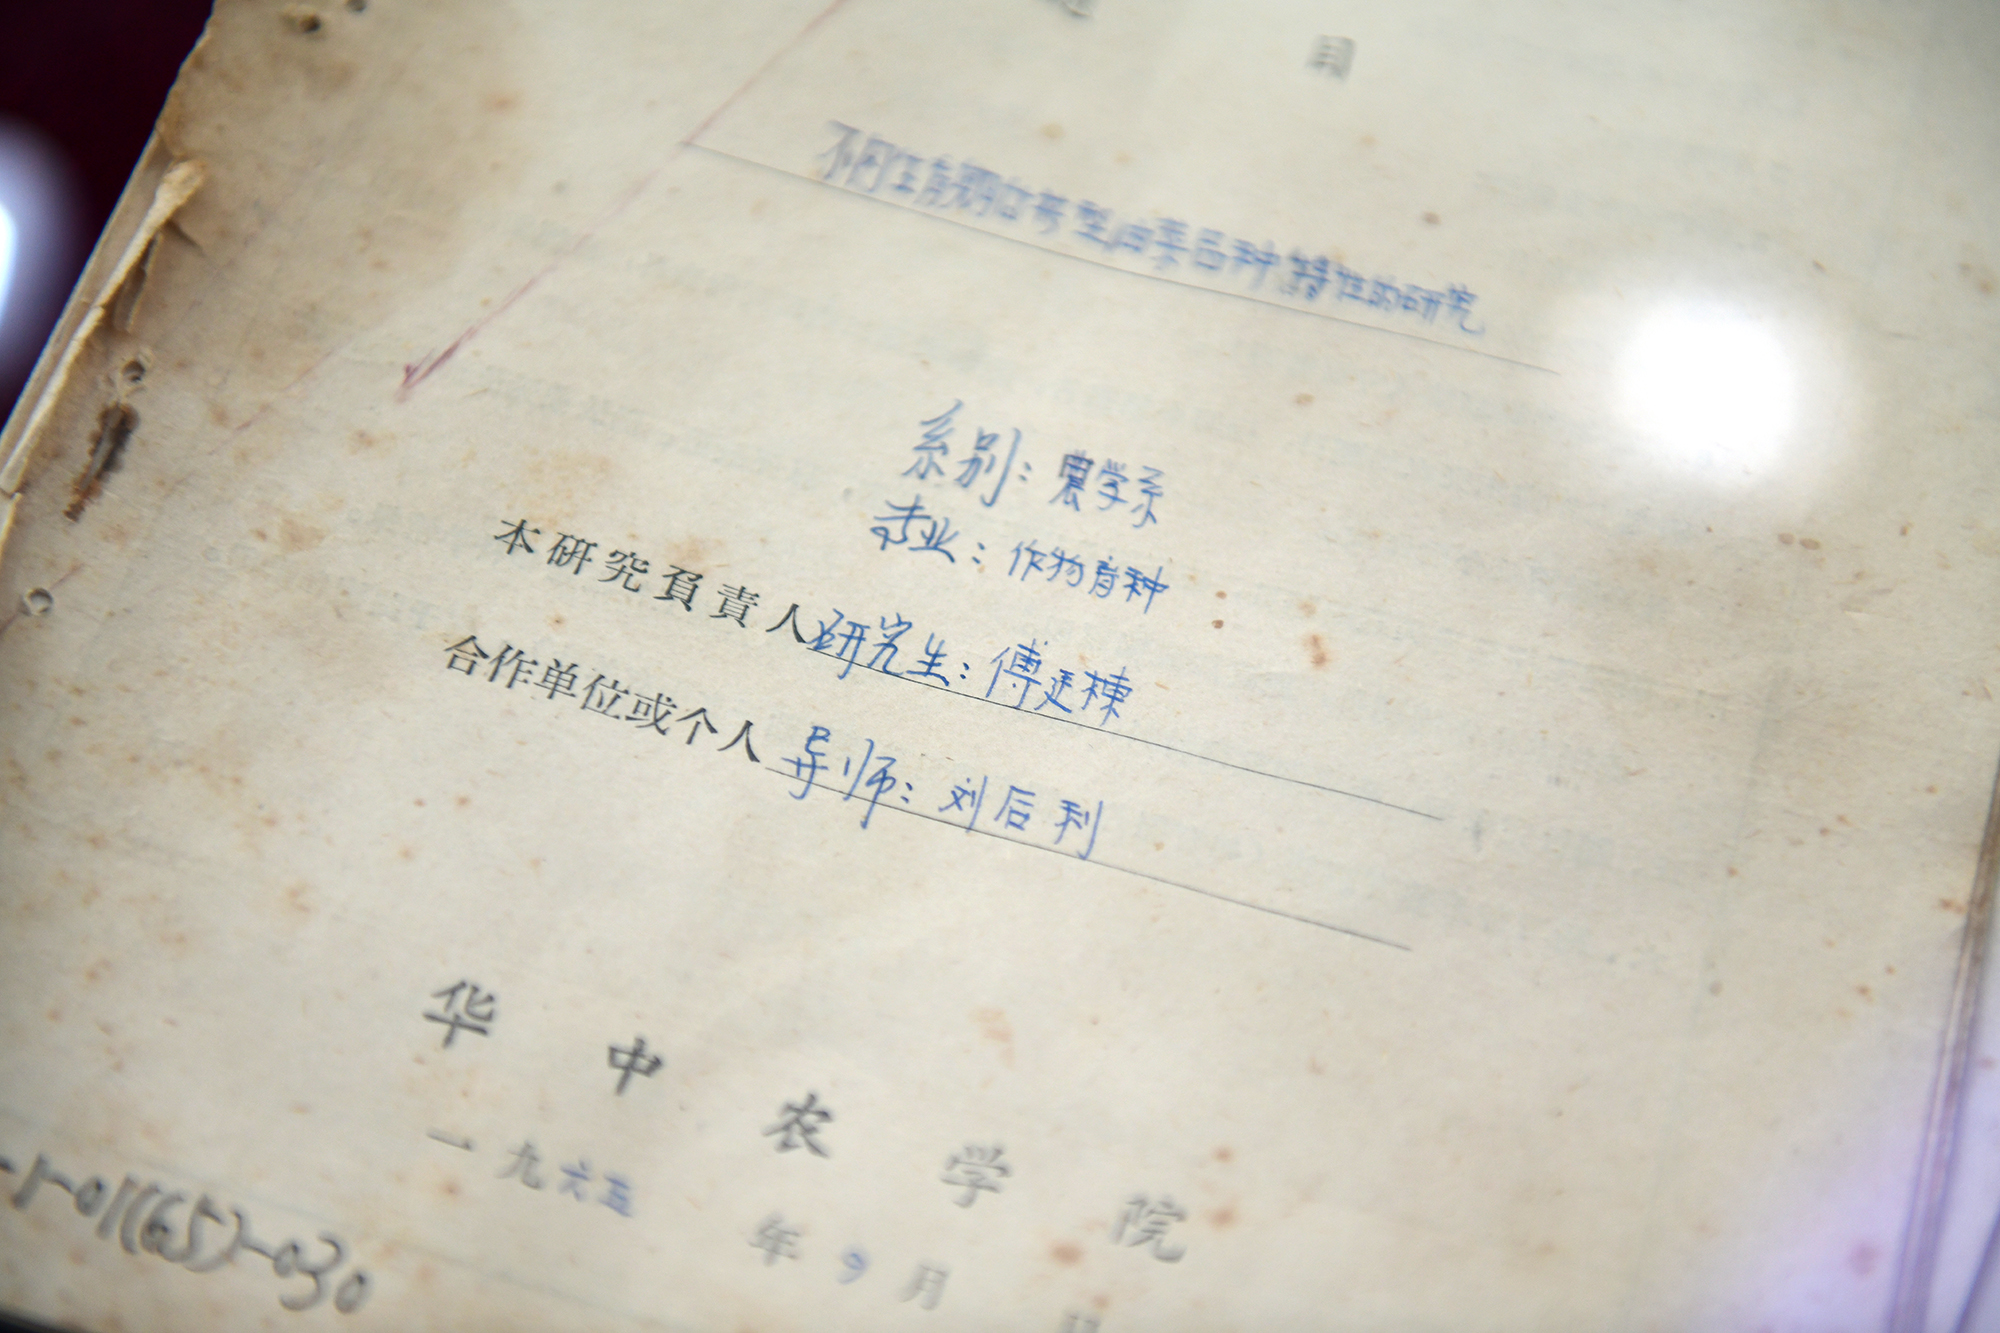 目
不同生育期甘芥型油菜后种特性的研究
系别：農学系
专业：作物育种
本研究負責人研究生：傅廷棟
合作单位或个人导师：刘后利
华中农学院
一九六五年9月
-1-01(65)-030